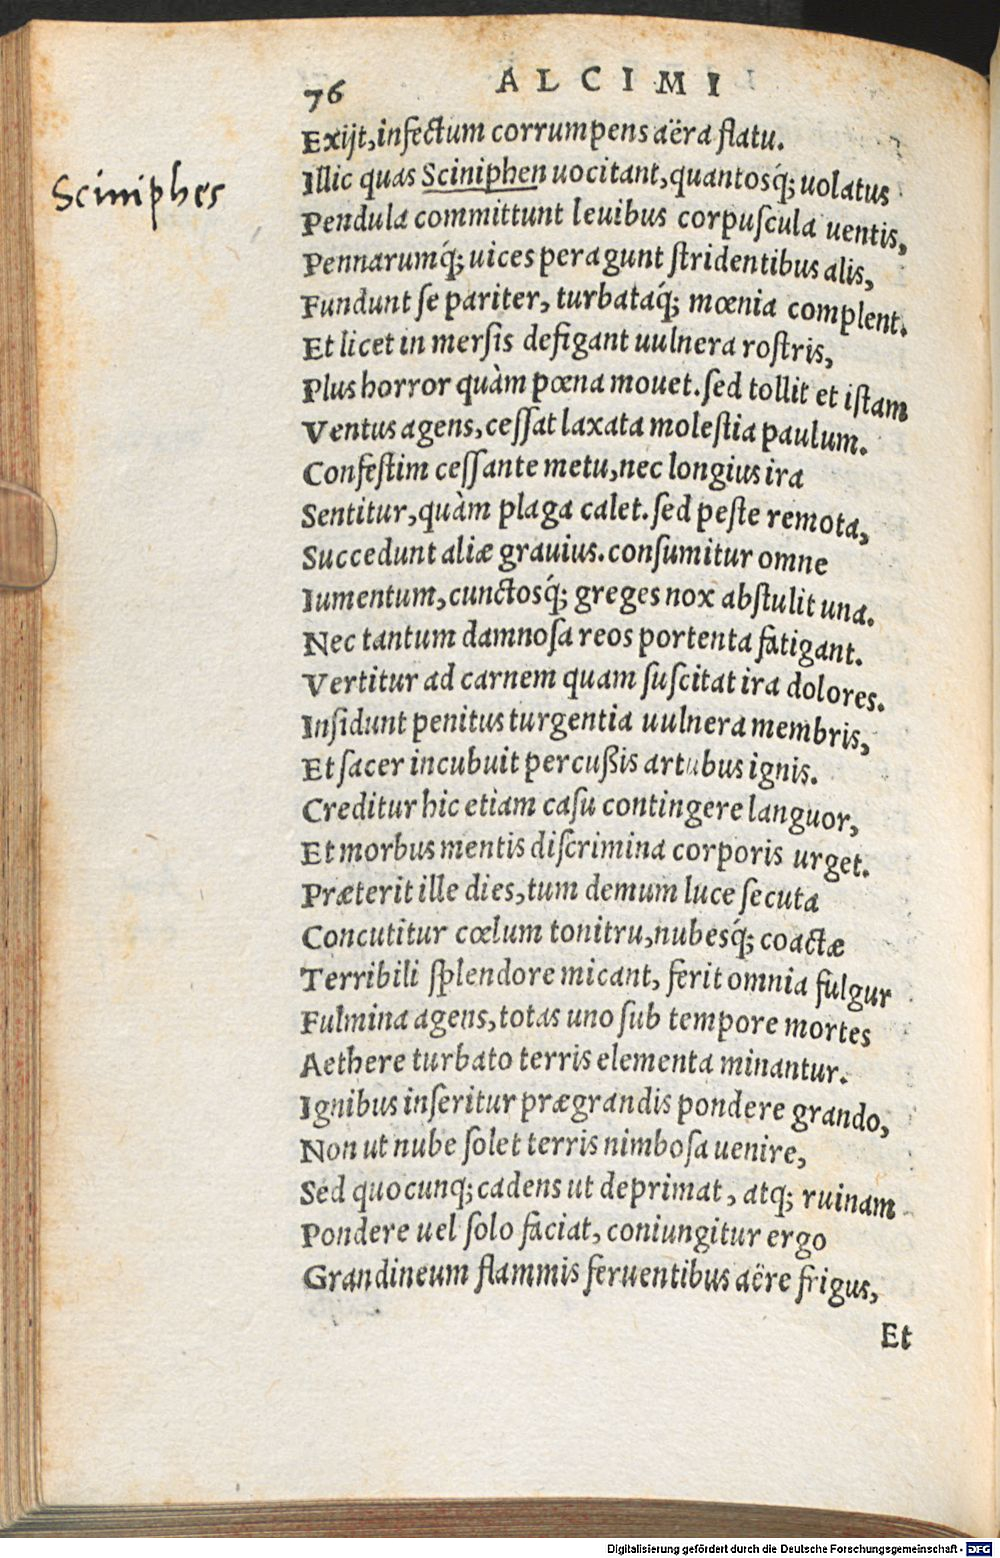 76 ALCIMI
Exijt, infectum corrumpens aëra flatu.
Sciniphes
Illic quas Sciniphen uocitant, quantosq́; uolatus
Pendula committunt leuibus corpuſcula uentis,
Pennarumq́; uices peragunt ſtridentibus alis,
Fundunt ſe pariter, turbataq́; mœnia complent.
Et licet in mersis defigant uulnera roſtris,
Plus horror quàm pœna mouet. ſed tollit et iſtam
Ventus agens, ceſſat laxata moleſtia paulum.
Confeſtim ceſſante metu, nec longius ira
Sentitur, quàm plaga calet. ſed peſte remota,
Succedunt aliæ grauius. conſumitur omne
Iumentum, cunctosq́; greges nox abſtulit una.
Nec tantum damnoſa reos portenta fatigant.
Vertitur ad carnem quam ſuſcitat ira dolores.
Inſidunt penitus turgentia uulnera membris,
Et ſacer incubuit percußis artubus ignis.
Creditur hic etiam caſu contingere languor,
Et morbus mentis diſcrimina corporis urget.
Præterit ille dies, tum demum luce ſecuta
Concutitur cœlum tonitru, nubesq́; coactæ
Terribili ſplendore micant, ferit omnia fulgur
Fulmina agens, totas uno ſub tempore mortes
Aethere turbato terris elementa minantur.
Ignibus inſeritur prægrandis pondere grando,
Non ut nube ſolet terris nimboſa uenire,
Sed quocunq; cadens ut deprimat, atq; ruinam
Pondere uel ſolo faciat, coniungitur ergo
Grandineum flammis feruentibus aëre frigus,
Et
Digitalisierung gefördert durch die Deutsche Forschungsgemeinschaft - DFG